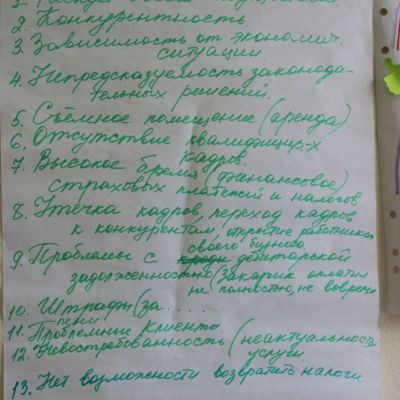 2. Конкурентность.
3. Зависимость от экономич.
ситуации.
4. Непредсказуемость законода-
тельных решений.
5. Съёмное помещение (аренда)
6. Отсутствие квалифицир-х
кадров.
7. Высокое бремя (финансовое)
страховых платежей и налогов.
8. Утечка кадров, переход кадров
к конкурентам, открытие работником
своего бизнеса
9. Проблемы с дебиторской
задолженностью (заказчик оплатил
не полностью, не вовремя
10. Штрафы (за .....
пени
11. Проблемные клиенты
12. Невостребованность (неактуальность
услуги.
13. Нет возможности возвратить налоги